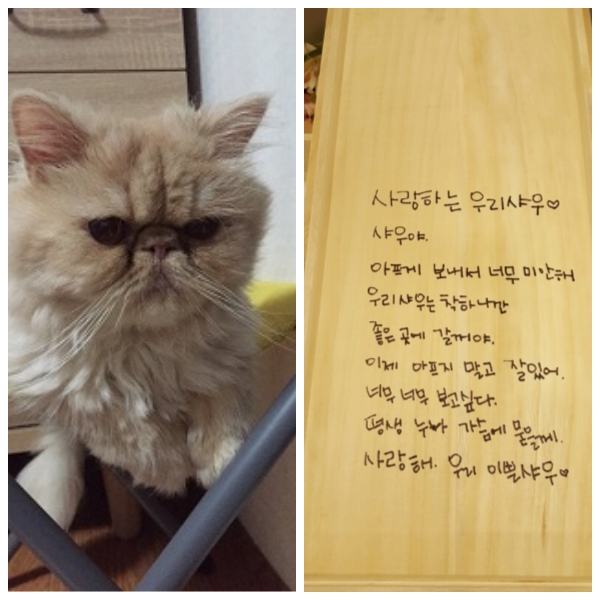 사랑하는 우리샤우♡
샤우야.
아프게 보내서 너무 미안해
우리샤우는 착하니깐
좋은 곳에 갈꺼야.
이제 아프지 말고 잘있어.
너무 너무 보고싶다.
평생 누나 가슴에 묻을께.
사랑해. 우리 이쁜샤우♡